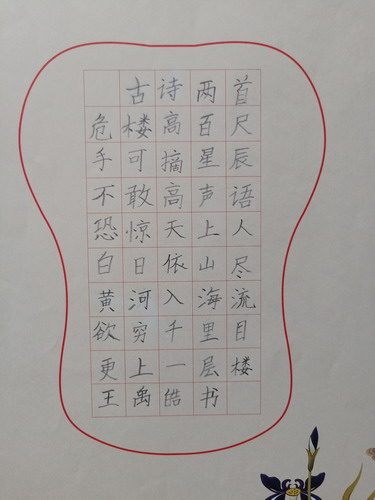 古诗两首
危楼高百尺
手可摘星辰
不敢高声语
恐惊天上人
白日依山尽
黄河入海流
欲穷千里目
更上一层楼
王禹皓书